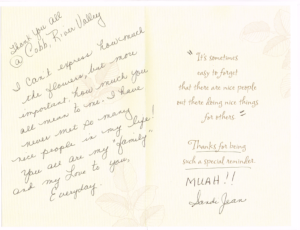 Thank you all
@ Cobb, River Valley
I can't express how much
the flowers, but more
important how much you
all mean to me. I have
never met so many
nice people in my life!
You all are my "family"
and my love to you,
Everyday.
"It's sometimes
easy to forget
that there are nice people
out there doing nice things
for others."
Thanks for being
such a special reminder.
MUAH!!
Jean